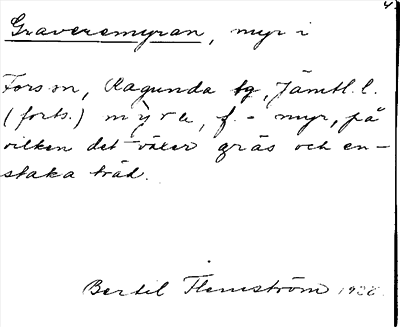 Graveremyran, myr i
Fors sn, Ragunda tg, Jämtl. l.
(forts.) myra, f. - myr, på
vilken det växer gräs och en-
staka träd.
Bertil Flemström
4